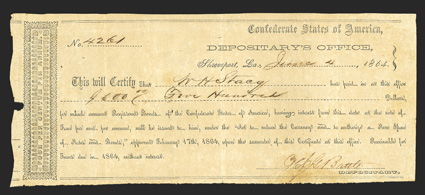 Confederate States of America,
No. 4261
DEPOSITARY'S OFFICE,
Shreveport, La., 4, 1864
This will Certify That W. H. Stacy has paid in at this office
$500 Five Hundred Dollars,
for which amount Registered Bonds of the Confederate States of America, bearing interest from this date, at the rate of
Four per cent. per annum, will be issued to him, under the "Act to reduce the Currency and to authorize a New Issue
of Notes and Bonds," approved February 17th, 1864, upon the surrender of this certificate at this office.
1864, without interest.
DEPOSITARY.